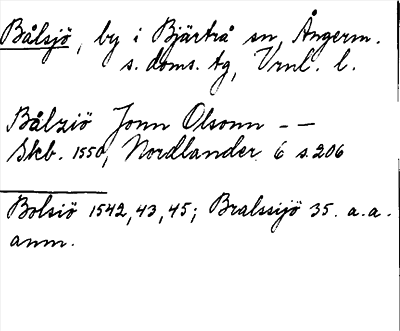 Bålsjö, by i Bjärtrå sn, Ångerm.
s. doms. tg, Vrnl. l.
Bålziö Jonn Olsonn – –
Skb. 1550, Nordlander 6 s. 206
Bolsiö 1542, 43, 45; Bralssijö 35. a.a.
anm.